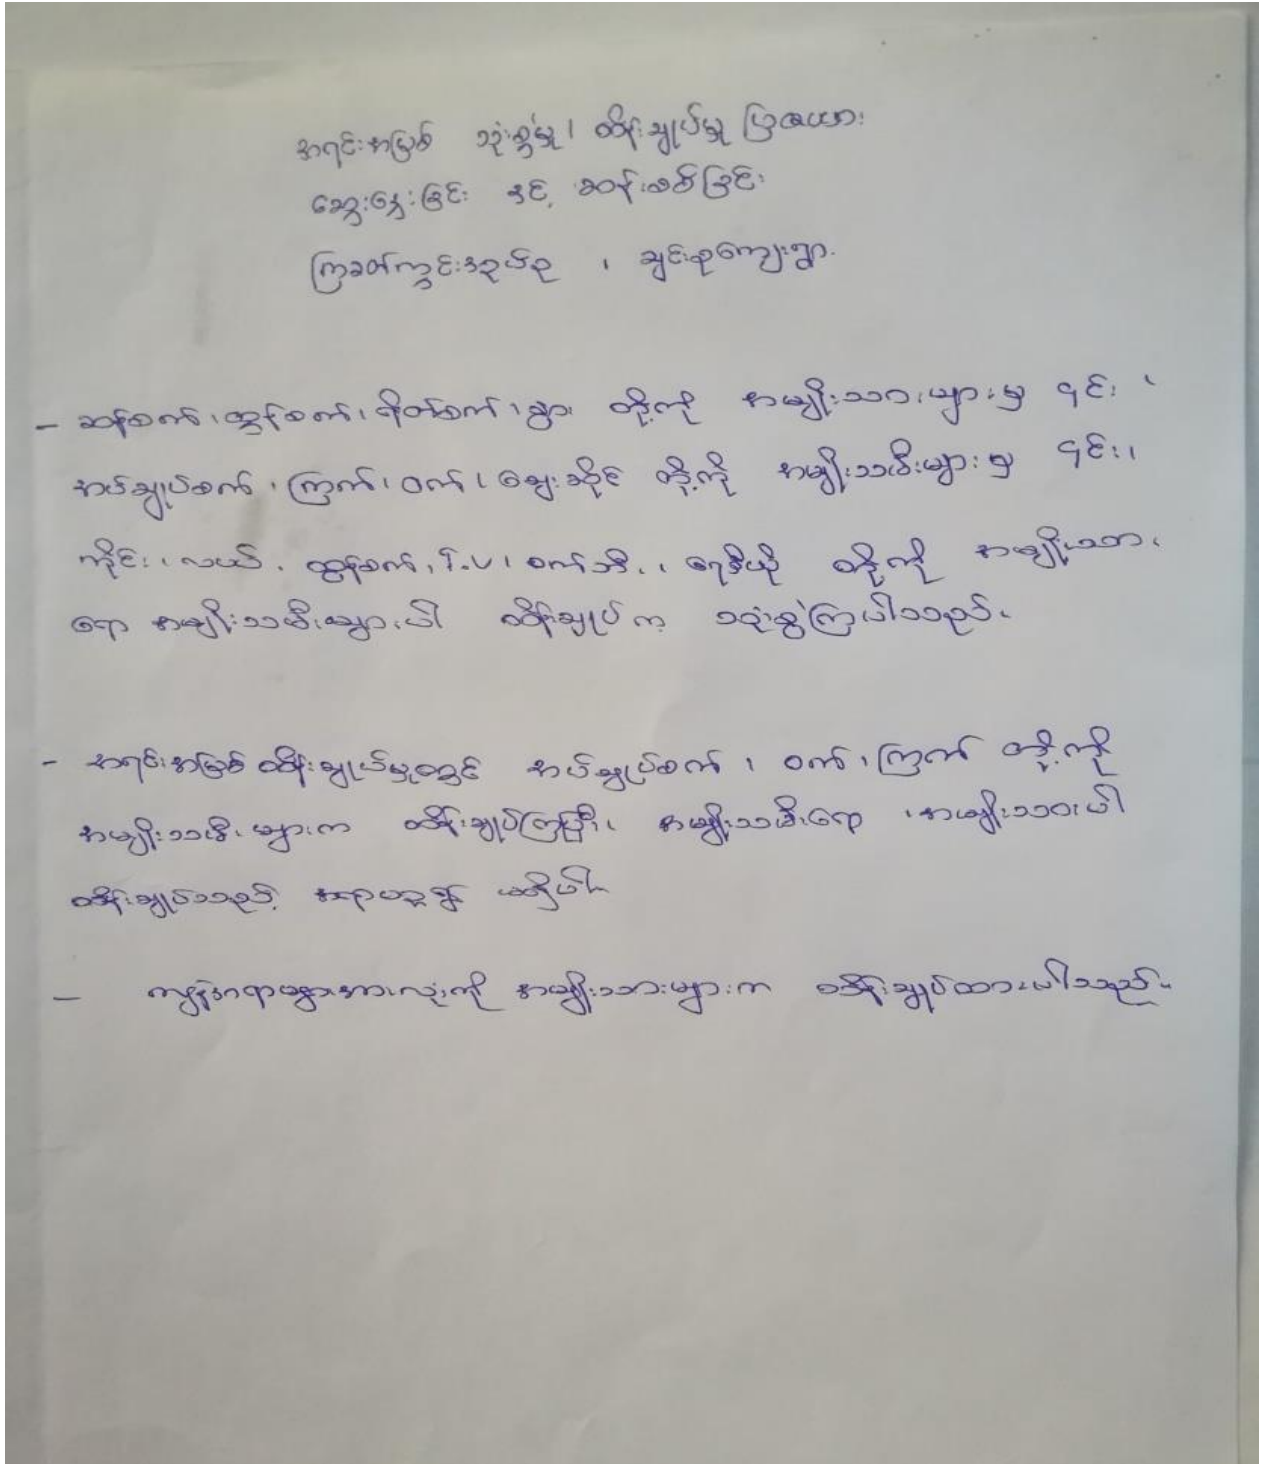 အရင်းအမြစ် သုံးစွဲမှု၊ ထိန်းချုပ်မှု ပြဇယား
ဆွေးနွေးခြင်း နှင့် ဆန်းစစ်ခြင်း
ကြခတ်ကွင်းအုပ်စု ၊ ချင်းစုကျေးရွာ.
- ဆန်စက်၊ ထွန်စက်၊ ရိတ်စက်၊ နွား တို့ကို အမျိုးသားများမှ ၎င်း ၊
အပ်ချုပ်စက် ၊ ကြက်၊ ဝက်၊ ဈေးဆိုင် တို့ကို အမျိုးသမီးများမှ ၎င်း၊
ကိုင်း ၊ လယ် ၊ ထွန်စက်၊ T.V ၊ စက်ဘီး ၊ ရေဒီယို တို့ကို အမျိုးသား
ရော အမျိုးသမီးများပါ ထိန်းချုပ် က သုံးစွဲကြပါသည်။
- အရင်းအမြစ် ထိန်းချုပ်မှုတွင် အပ်ချုပ်စက် ၊ ဝက် ၊ ကြက် တို့ကို
အမျိုးသမီးများက ထိန်းချုပ်ကြပြီး၊ အမျိုးသမီးရော ၊ အမျိုးသားပါ
ထိန်းချုပ်သည့် အရာမှာ မရှိပါ။
- ကျန်အရာများအားလုံးကို အမျိုးသားများက ထိန်းချုပ်ထားပါသည်။